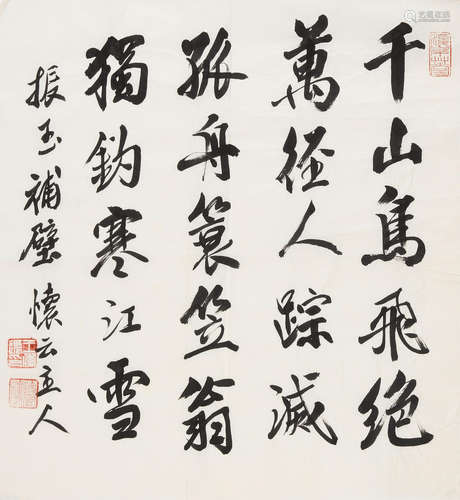 千山鳥飛绝
萬径人踪滅
孤舟簑笠翁
獨釣寒江雪
振玉補壁 懷云主人